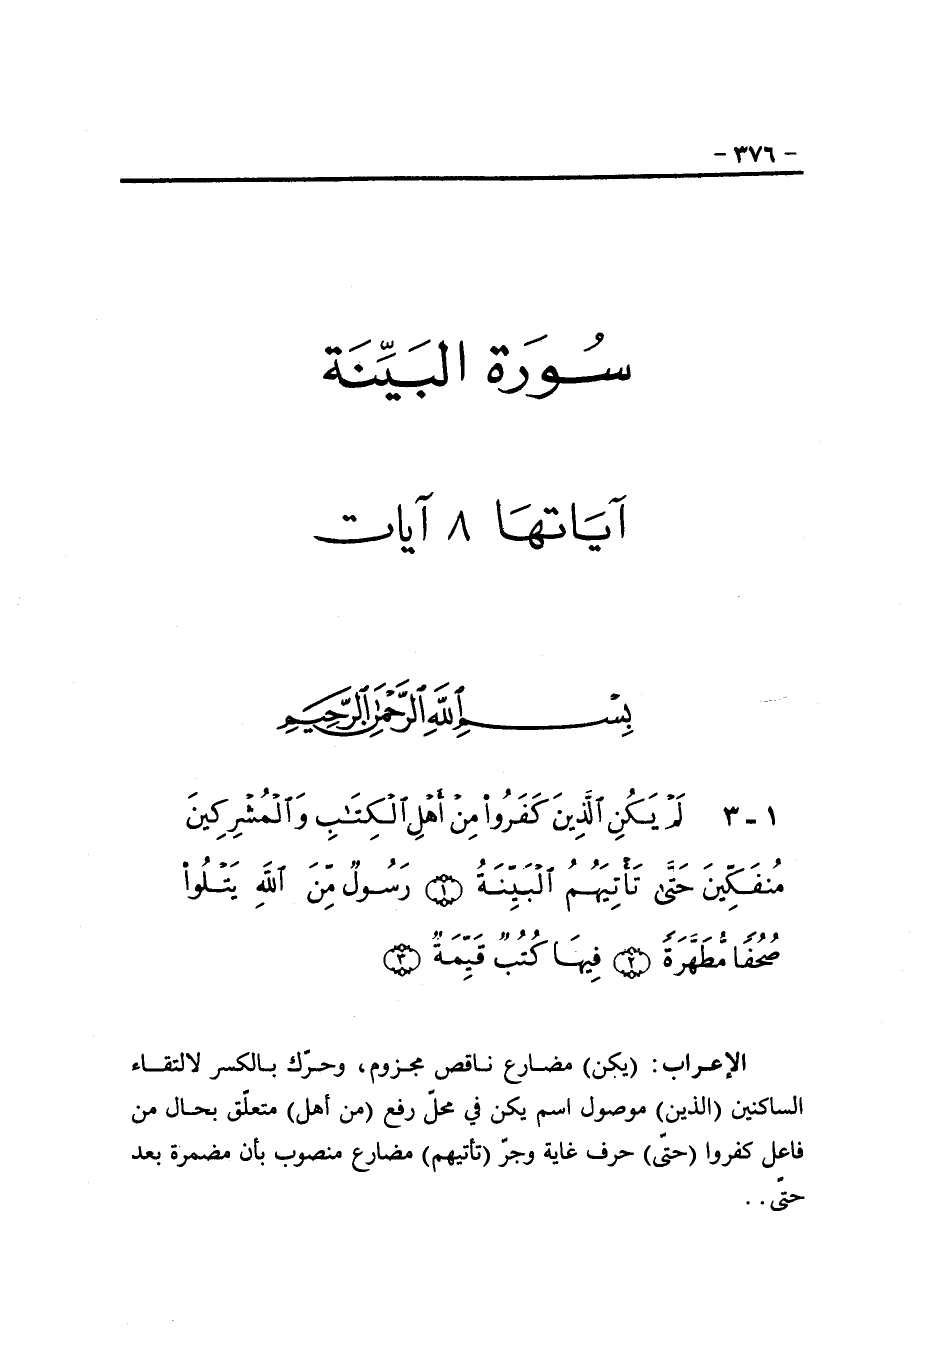 - ٣٧٦ -
سُورَة البَيِّنَة
آيَاتهَا ٨ آيات
بِسْمِ ٱللَّهِ ٱلرَّحْمَٰنِ ٱلرَّحِيمِ
١ - ٣ لَمْ يَكُنِ ٱلَّذِينَ كَفَرُوا۟ مِنْ أَهْلِ ٱلْكِتَٰبِ وَٱلْمُشْرِكِينَ
مُنفَكِّينَ حَتَّىٰ تَأْتِيَهُمُ ٱلْبَيِّنَةُ ﴿١﴾ رَسُولٌ مِّنَ ٱللَّهِ يَتْلُوا۟
صُحُفًا مُّطَهَّرَةً ﴿٢﴾ فِيهَا كُتُبٌ قَيِّمَةٌ ﴿٣﴾
الإعراب: (يكن) مضارع ناقص مجزوم، وحرّك بالكسر لالتقاء
الساكنين (الذين) موصول اسم يكن في محلّ رفع (من أهل) متعلّق بحال من
فاعل كفروا (حتّى) حرف غاية وجرّ (تأتيهم) مضارع منصوب بأن مضمرة بعد
حتّى..